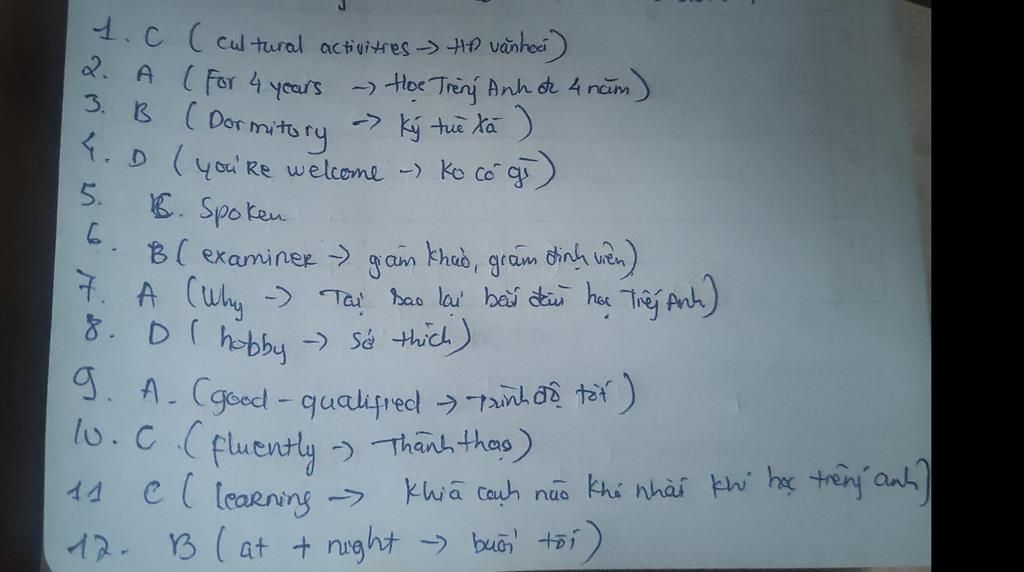 1. C ( cultural activities → HĐ văn hoá)
2. A ( For 4 years → Học Tiếng Anh đc 4 năm)
3. B ( Dormitory → Ký túc xá )
4. D ( you're welcome → Ko có gì)
5. C. Spoken
6. B ( examiner → giám khảo, giám định viên)
7. A ( Why → Tại sao lại bắt đầu học Tiếng Anh)
8. D ( hobby → Sở thích)
9. A - (good - qualified → Trình độ tốt )
10. C . ( fluently → Thành thạo)
11 C ( learning → Khía cạnh nào khó nhất khi học tiếng anh)
12. B ( at + night → buổi tối )